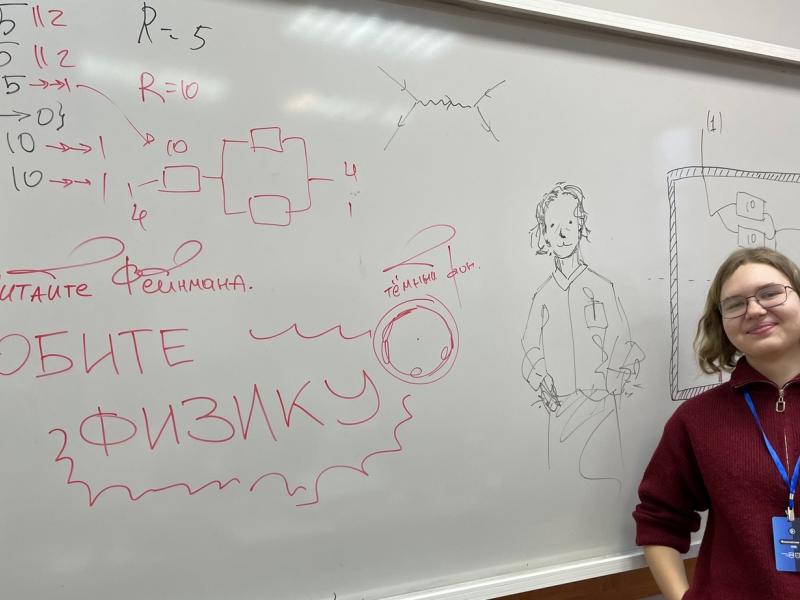 5 || 2
R = 5
5 || 2
5 →→ 1
R = 10
→ 0}
10 →→ 1
10
10 →→ 1
4
4
1
(1)
10
10
итайте Фейнмана.
тёмный фон.
ОБИТЕ
ФИЗИКУ